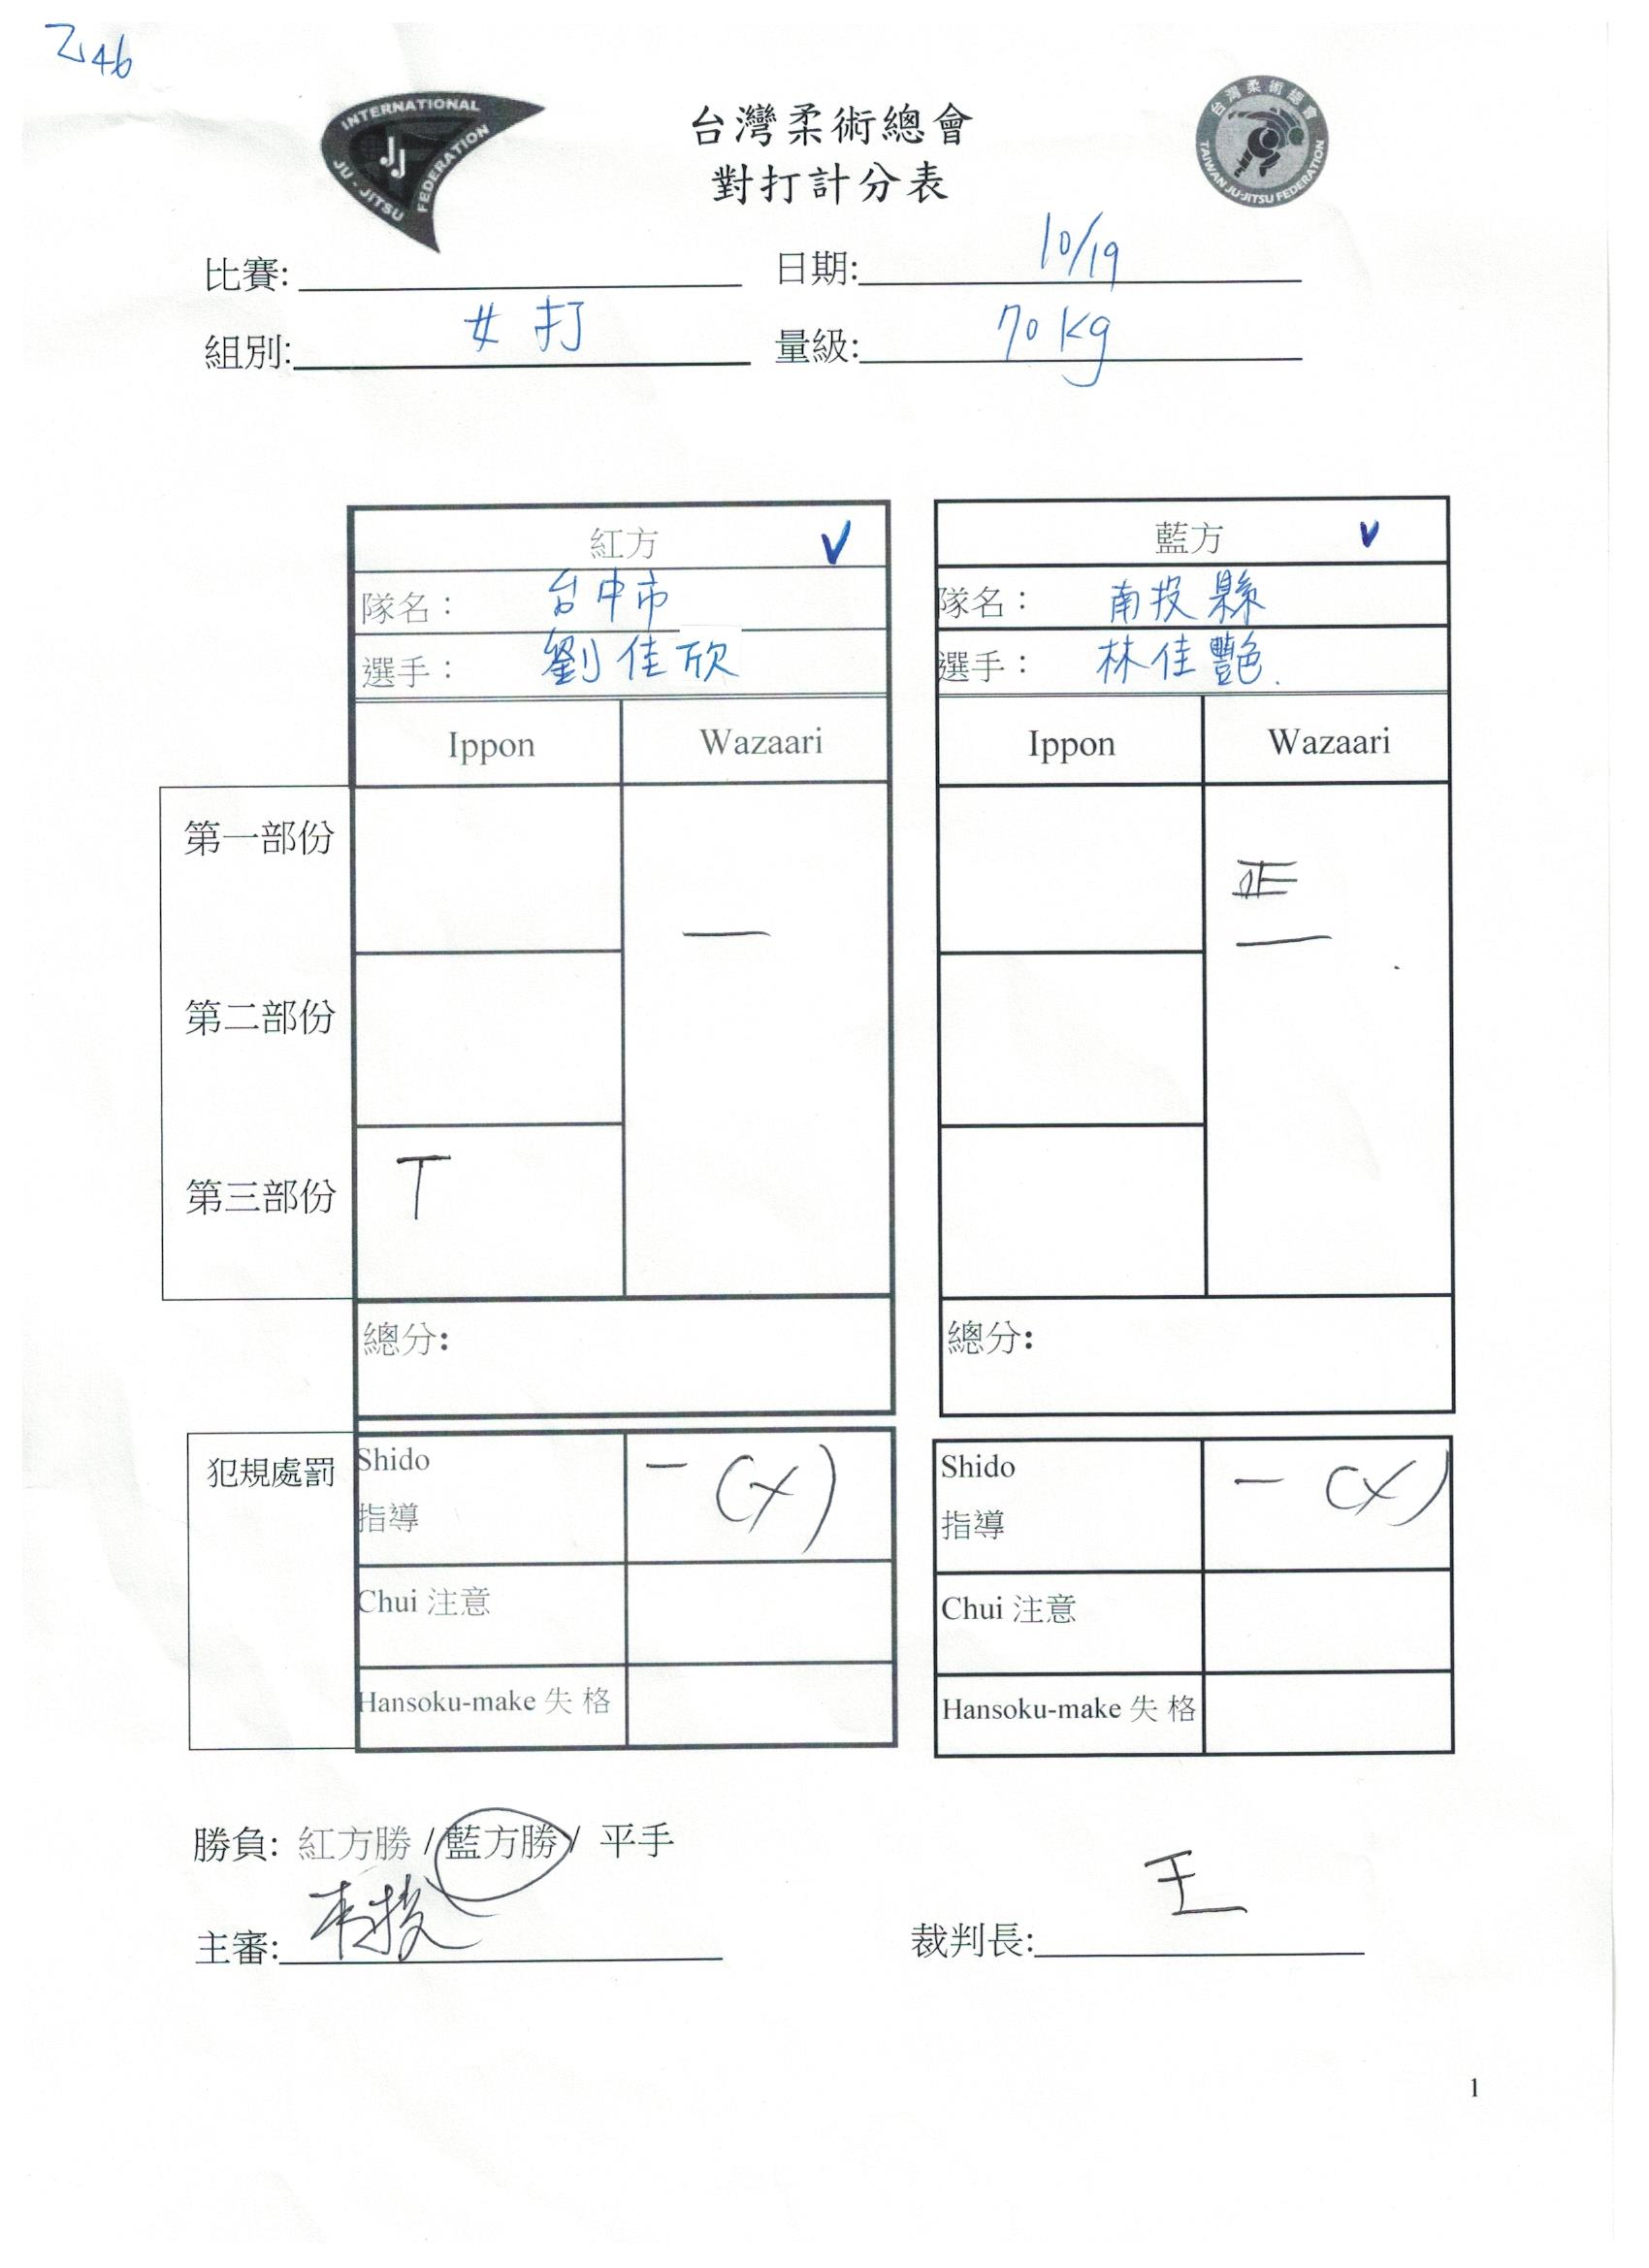 乙46
INTERNATIONAL
JU-JITSU FEDERATION
JJ
台灣柔術總會
對打計分表
台灣柔術總會
TAIWAN JU-JITSU FEDERATION
比賽: 日期: 10/19
組別: 女打 量級: 70kg
紅方 ✓ 藍方 ✓
隊名： 台中市 隊名： 南投縣
選手： 劉佳欣 選手： 林佳豔.
Ippon Wazaari Ippon Wazaari
第一部份 一 正 一
第二部份
第三部份 T
總分: 總分:
犯規處罰 Shido 指導 一 (X) Shido 指導 一 (X)
Chui 注意 Chui 注意
Hansoku-make 失格 Hansoku-make 失格
勝負: 紅方勝 / 藍方勝 / 平手
主審: 裁判長: 王
1